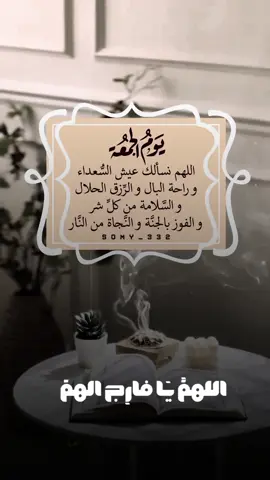 يَومُ الجُمعَة
اللهم نسألك عيش السُّعداء
و راحة البال و الرِّزق الحلال
و السَّلامة من كلِّ شر
و الفوز بالجنَّة و النَّجاة من النَّار
SOMY_332
اللهمَّ يَا فارِجَ الهمّ